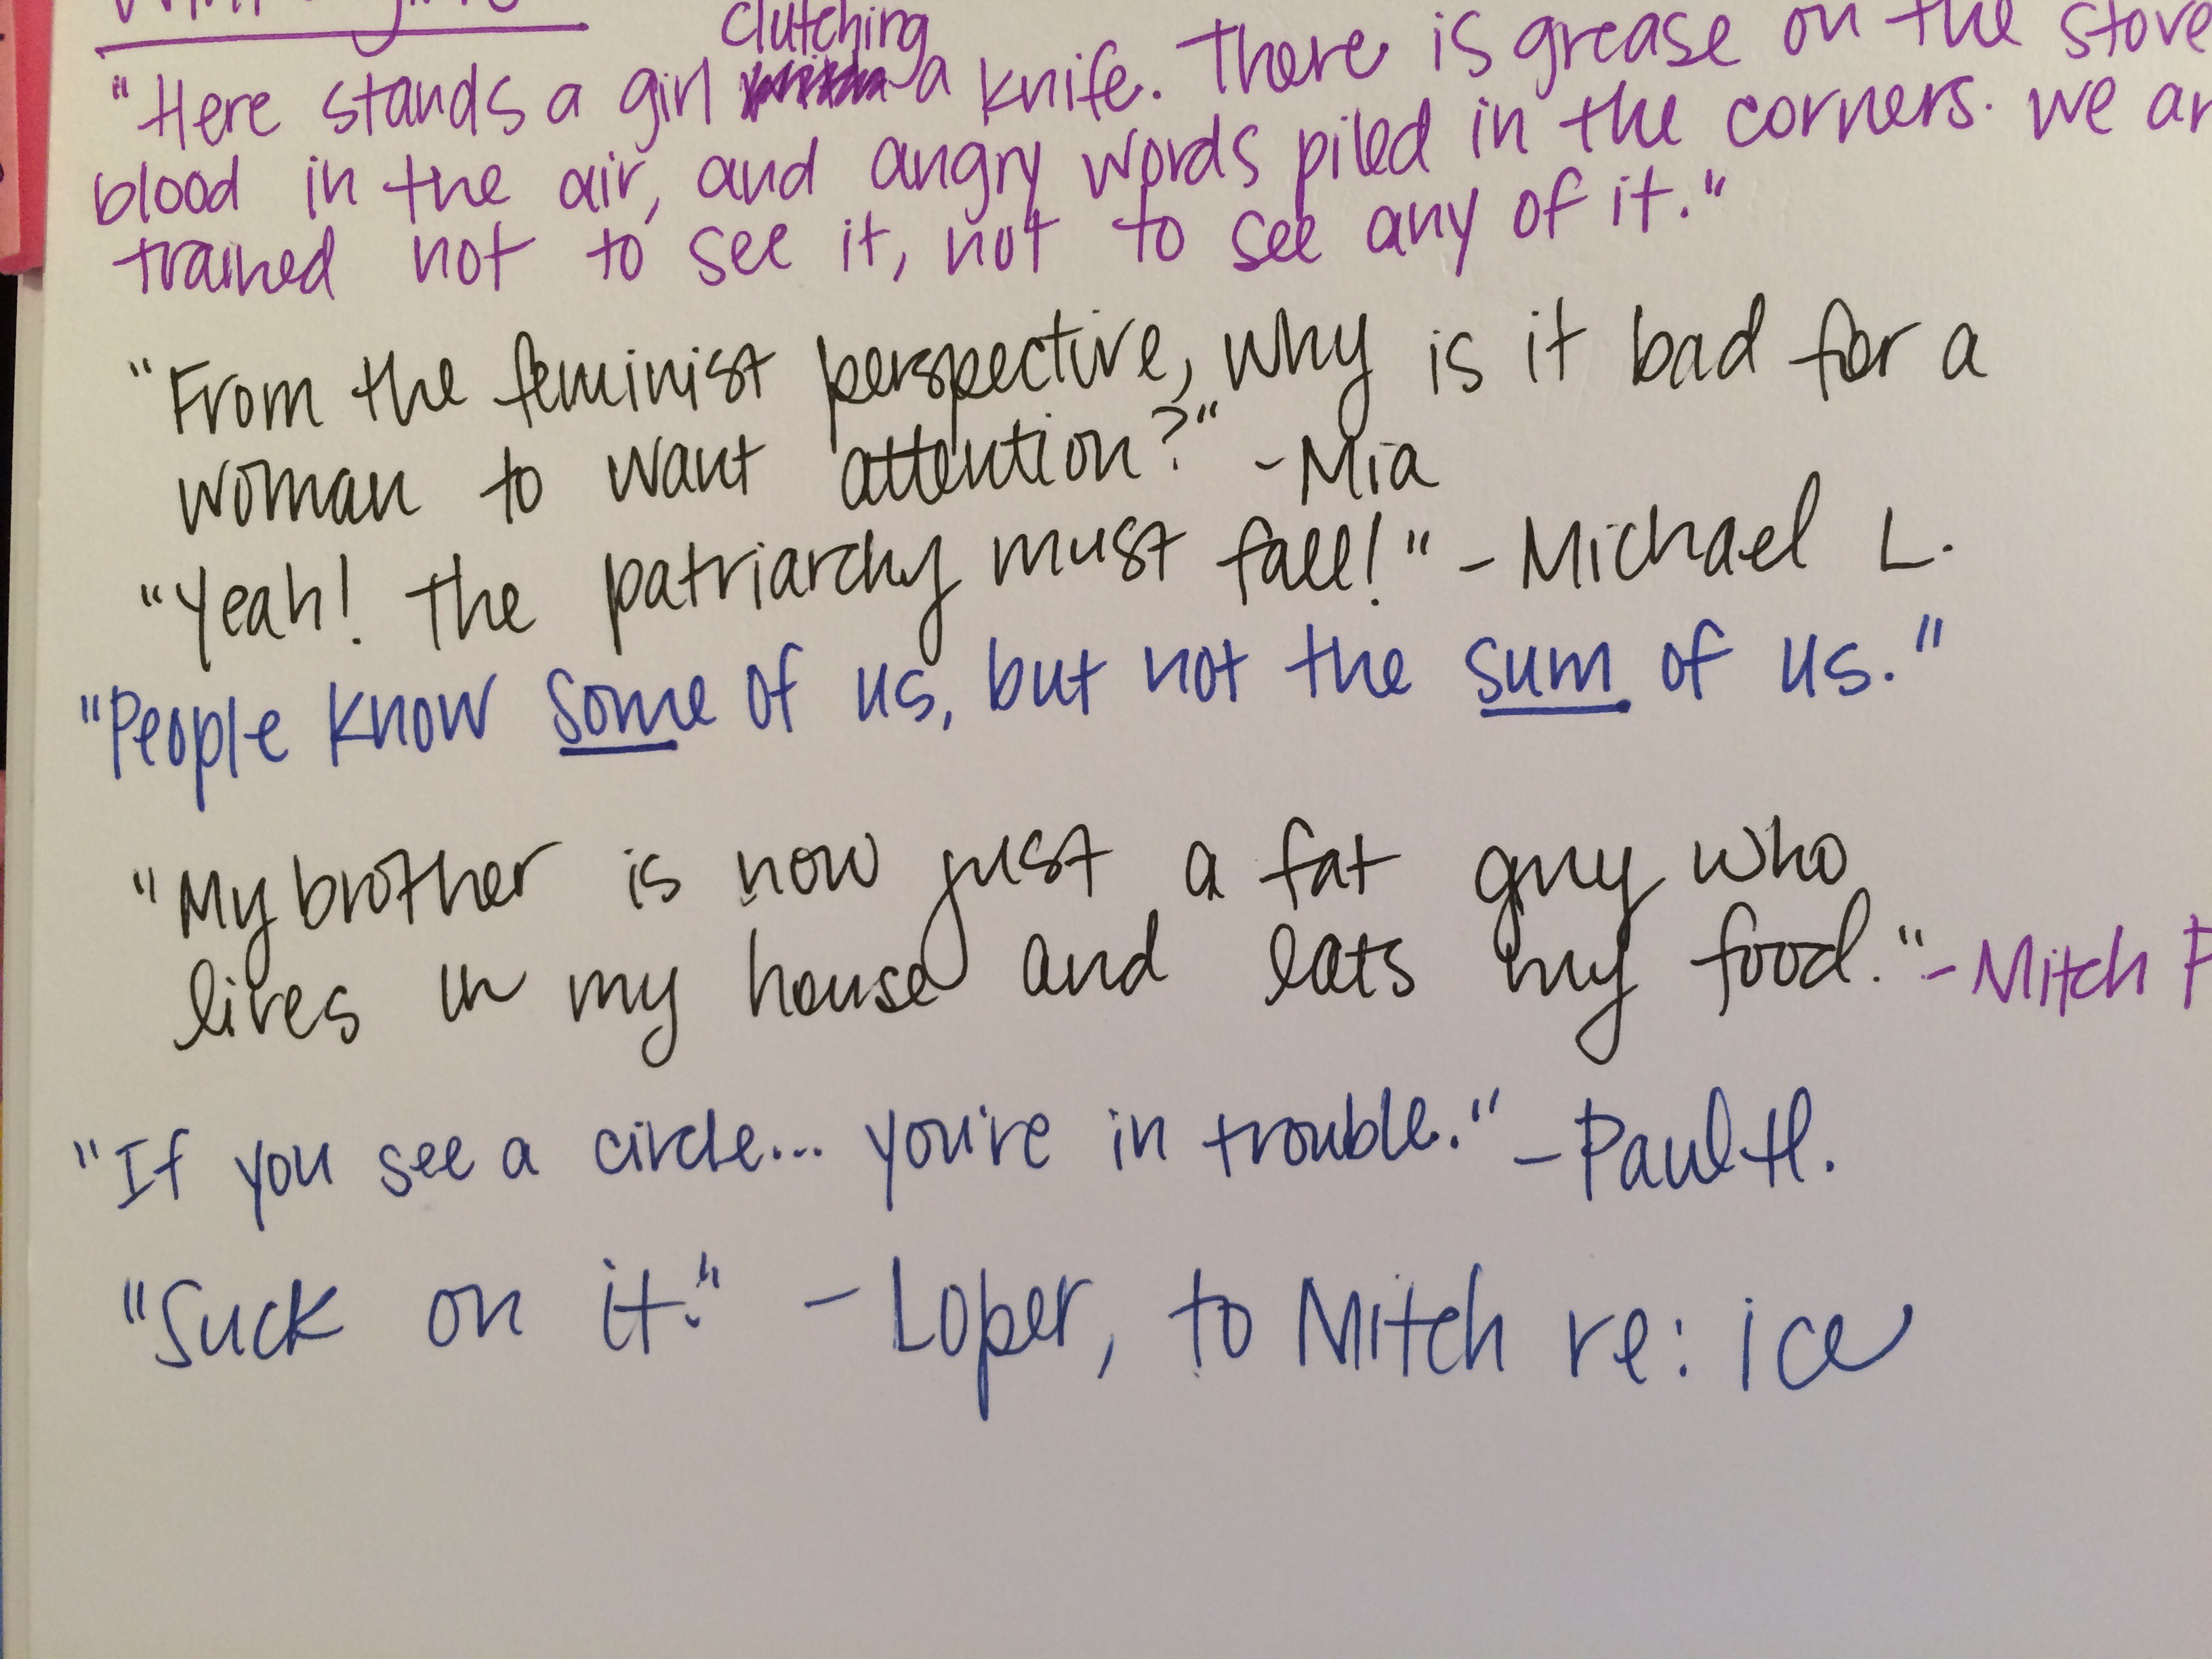 clutching
"Here stands a girl a knife. There is grease on the stove
blood in the air, and angry words piled in the corners. We
trained not to see it, not to see any of it."
"From the feminist perspective, why is it bad for a
woman to want attention?" - Mia
"Yeah! The patriarchy must fall!" - Michael L.
"People know some of us, but not the sum of us."
"My brother is now just a fat guy who
lives in my house and eats my food." - Mitch
"If you see a circle... you're in trouble." - Paul H.
"Suck on it." - Loper, to Mitch re: ice